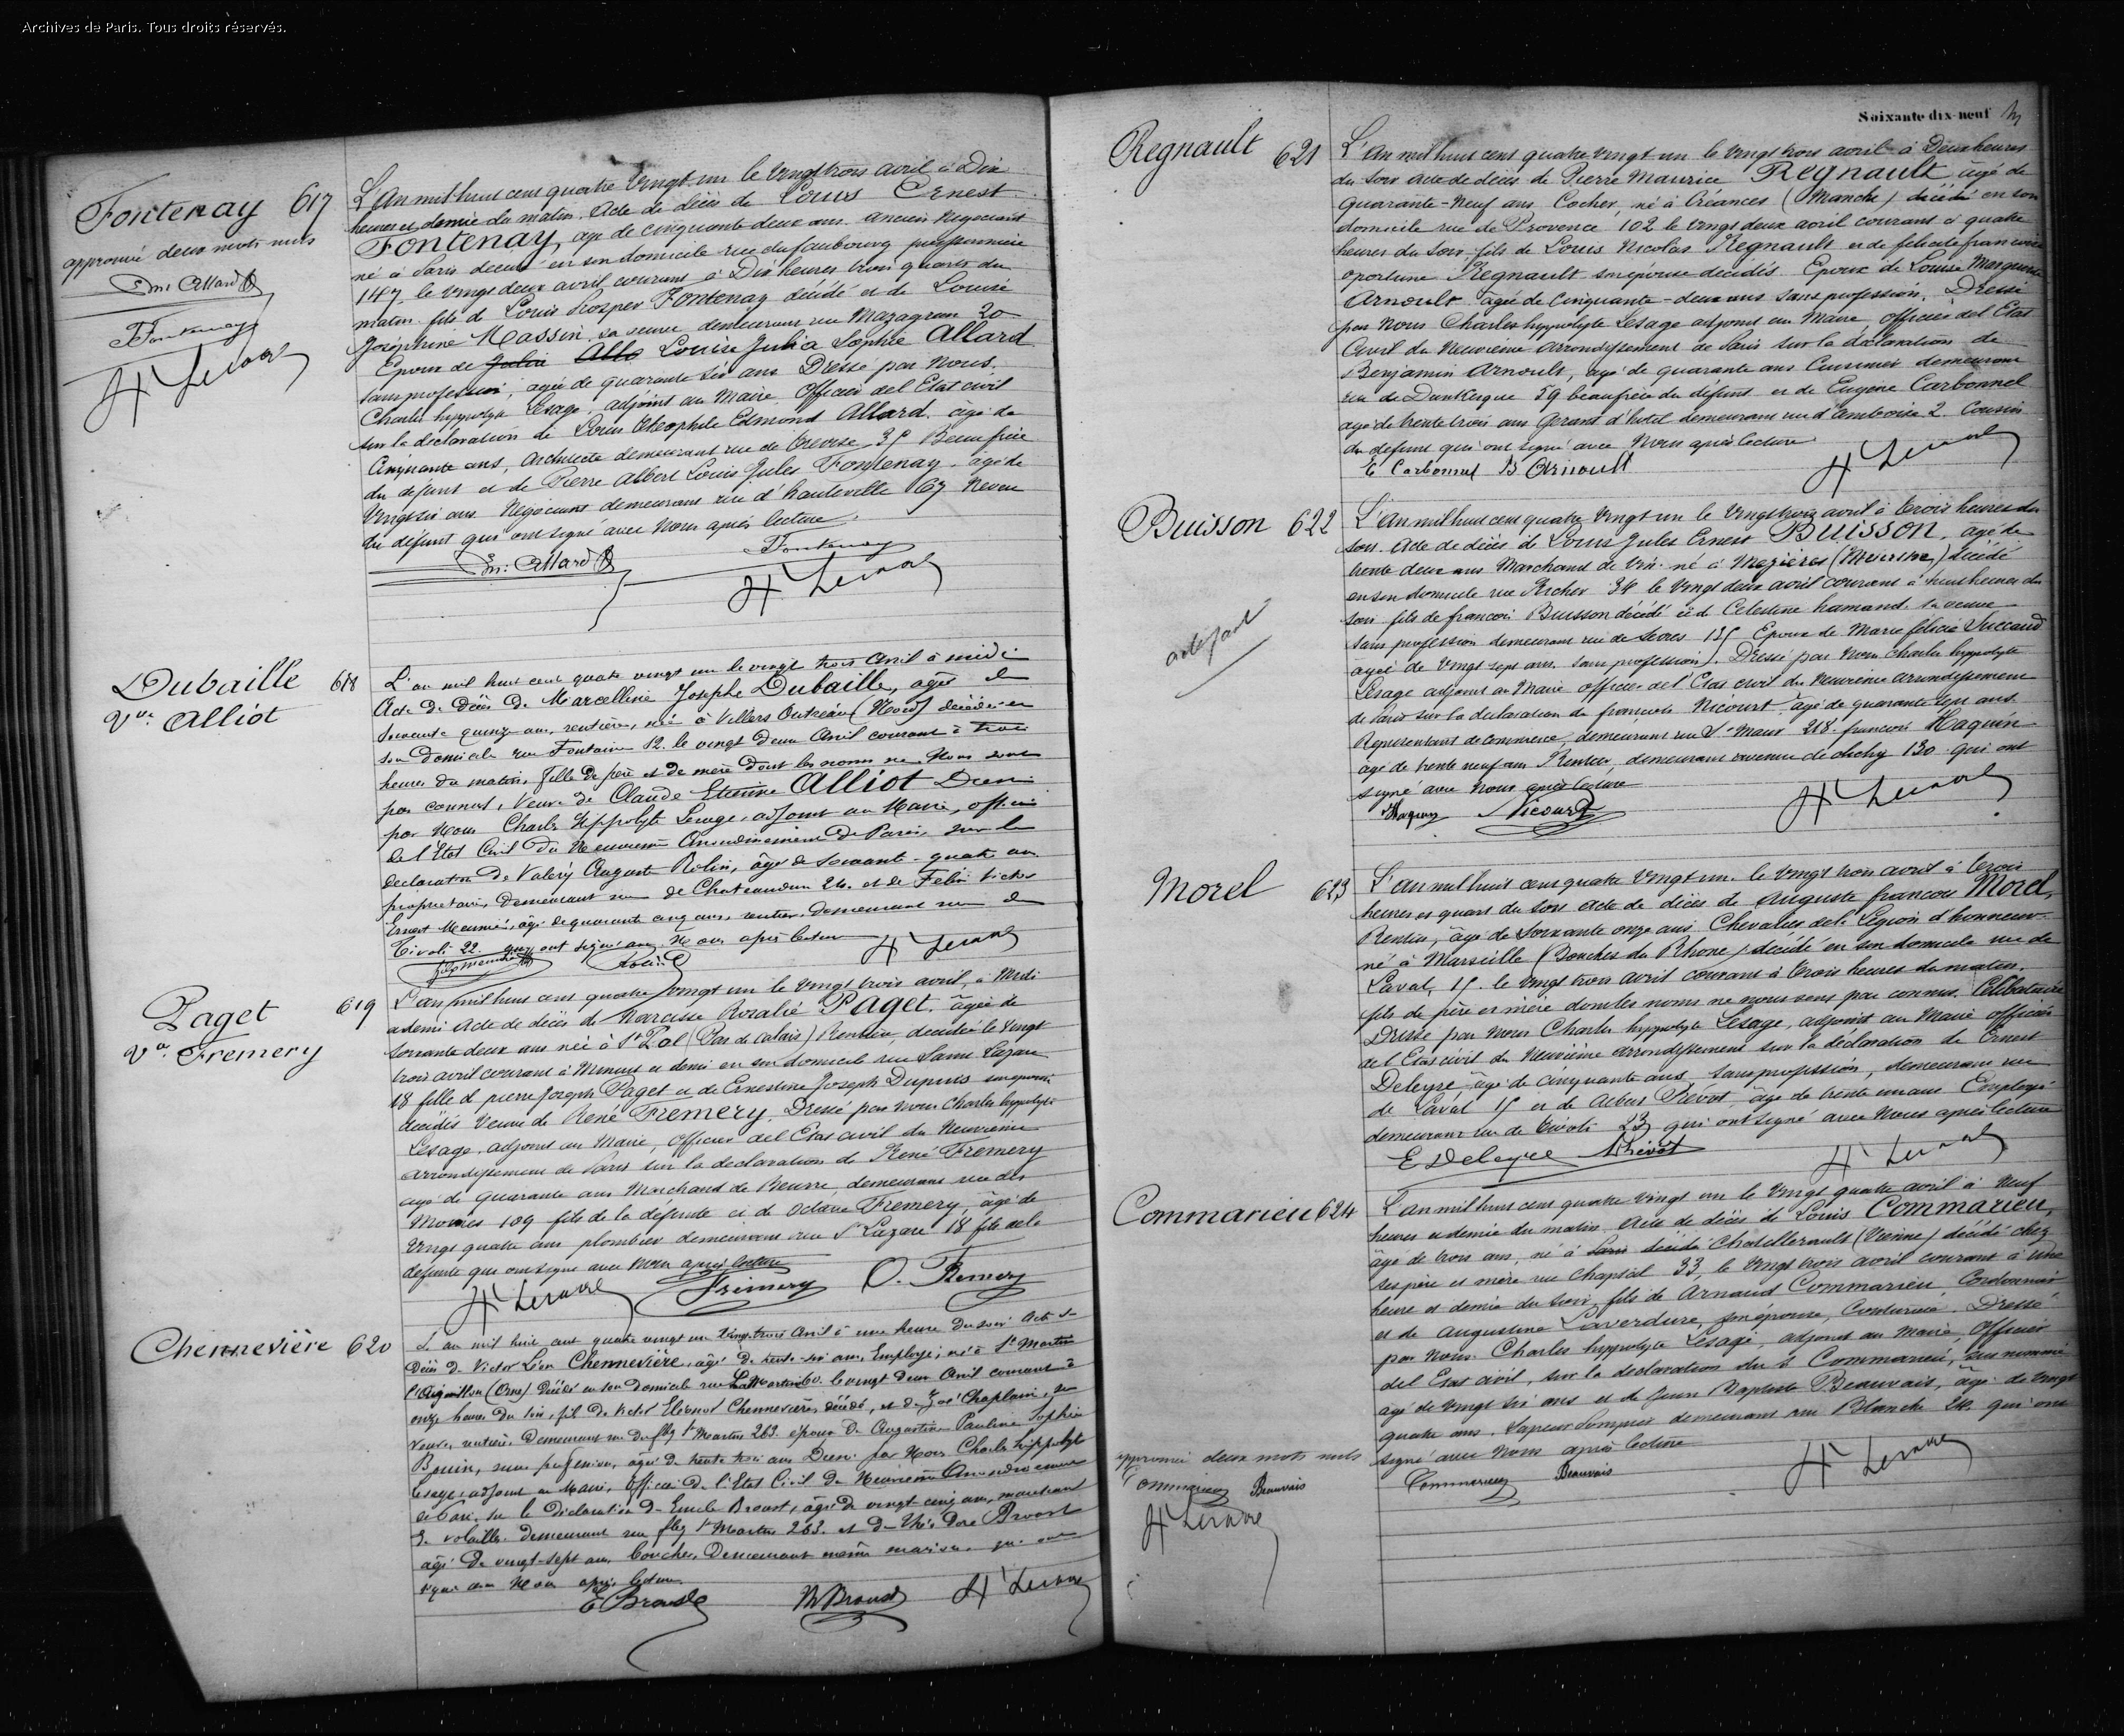 Archives de Paris. Tous droits réservés.
Fontenay 617
approuvé deux mots nuls
Em: Allard
Fontenay
H Lesage
L'An mil huit cent quatre vingt un le vingt trois avril à Dix
heures et demie du matin. Acte de décès de Louis Ernest
Fontenay, agé de cinquante deux ans ancien Négociant
né à Paris décédé en son domicile rue du faubourg poissonnière
147, le vingt deux avril courant à Dix heures trois quarts du
matin fils de Louis Prosper Fontenay décédé et de Louise
Joséphine Massin sa veuve demeurant rue Mazagran 20
Epoux de Julia Allo Louise Julia Sophie Allard
sans profession, agée de quarante six ans Dressé par Nous,
Charles hyppolyte Lesage, adjoint au Maire, Officier del Etat civil
sur la déclaration de Louis Théophile Edmond Allard, âgé de
Cinquante ans, Architecte demeurant rue de Trévise 35 Beau frère
du défunt et de Pierre Albert Louis Jules Fontenay, âgé de
Vingt six ans Négociant demeurant rue d'hauteville 67 Neveu
du défunt qui ont signé avec Nous après lecture.
Em: Allard Fontenay
H Lesage
Dubaille 618
Ve Alliot
L'an mil huit cent quatre vingt un le vingt trois Avril à midi
Acte de décès de Marcelline Josephe Dubaille, agée de
soixante quinze ans, rentière, née à Villers Outréau (Nord) décédée en
son domicile rue Fontaine 12. le vingt deux Avril courant à trois
heures du matin, fille de père et de mère dont les noms ne Nous sont
pas connus, Veuve de Claude Etienne Alliot Dressé
par Nous Charles Hippolyte Lesage, adjoint au Maire, officier
de l'Etat Civil du Neuvième Arrondissement de Paris, sur la
déclaration de Valéry Auguste Robin, âgé de soixante-quatre ans
propriétaire, demeurant rue de Chateaudun 24. et de Félix Victor
Ernest Meunié, âgé de quarante cinq ans, rentier, demeurant rue de
Tivoli 22. qui ont signé avec Nous après lecture
H Lesage
Paget 619
Ve Fremery
L'an mil huit cent quatre vingt un le vingt trois avril, à Midi
et demi Acte de décès de Narcisse Rosalie Paget, âgée de
soixante deux ans née à St Pol (Pas de Calais) Rentière, décédée le Vingt
trois avril courant à Minuit et demi en son domicile rue Saint Lazare
18 fille de pierre Joseph Paget et de Ernestine Joseph Dupuis son épouse
décédés Veuve de René Fremery. Dressé par nous Charles hyppolyte
Lesage, adjoint au Maire, Officier del Etat civil du Neuvième
arrondissement de Paris sur la déclaration de René Fremery
agé de quarante ans Marchand de Beurre, demeurant rue des
Moines 109 fils de la défunte et de Octave Fremery, âgé de
Vingt quatre ans plombier demeurant rue St Lazare 18 fils de la
défunte qui ont signé avec Nous après lecture
H Lesage Frémery O. Fremery
Chennevière 620
L'an mil huit cent quatre vingt un le vingt trois avril à une heure du soir Acte de
Décès de Victor Léon Chennevière, agé de trente-six ans, Employé, né à St Martin
l'Aiguillon (Orne) Décédé en son domicile rue 60. le vingt deux Avril courant à
onze heures du soir, fils de Victor Eléonor Chennevière, décédé, et de Zoé Chaplain, sa
veuve, rentière, Demeurant rue du fbg St Martin 263. époux de Augustine Pauline Sophie
sans profession, agée de trente trois ans Dressé par Nous Charles Hippolyte
Lesage, adjoint au Maire, Officier de l'Etat Civil du Neuvième Arrondissement
de Paris, sur la déclaration de Emile Broust, âgé de vingt-cinq ans, marchand
de volailles demeurant rue fbg St Martin 263. et de Théodore Broust
agé de vingt-sept ans, boucher, Demeurant même maison, qui ont
signé avec Nous après lecture
E Broust Th Broust H Lesage
Soixante dix-neuf
Regnault 621
L'An mil huit cent quatre vingt un le vingt trois avril à Deux heures
du soir Acte de décès de Pierre Maurice Regnault âgé de
quarante-neuf ans, Cocher, né à Créances (Manche) décédé en son
domicile rue de Provence 102 le vingt deux avril courant à quatre
heures du soir, fils de Louis Nicolas Regnault et de félicité françoise
oportune Regnault son épouse décédés. Epoux de Louise Marguerite
Arnoult agée de Cinquante-deux ans sans profession. Dressé
par Nous Charles hyppolyte Lesage adjoint au Maire, officier del Etat
Civil du Neuvième Arrondissement de Paris sur la déclaration de
Benjamin Arnoult, agé de quarante ans Cuisinier demeurant
rue de Dunkerque 59 beaufrère du défunt et de Eugene Carbonnel
agé de trente trois ans Gerant d'hotel demeurant rue d'amboise 2. Cousin
du défunt qui ont signé avec Nous après lecture
E Carbonnel B Arnoult H Lesage
Buisson 622
L'An mil huit cent quatre vingt un le Vingt trois avril à trois heures du
soir. Acte de décès de Louis Jules Ernest Buisson, agé de
trente deux ans Marchand de Vin né à Mezières décédé
en son domicile rue Richer 34 le vingt deux avril courant à heures du
soir fils de francois Buisson décédé et de Celestine hamand sa veuve
sans profession demeurant rue de Sevres 135. Epoux de Marie félicie
agée de vingt sept ans, sans profession. Dressé par Nous Charles hyppolyte
Lesage adjoint au Maire officier del' Etat civil du Neuvième arrondissement
de Paris sur la déclaration de françois Nicourt âgé de quarante sept ans
Représentant de commerce, demeurant rue St Maur 218. françois Haquin
agé de trente neuf ans Rentier, demeurant avenue de clichy 130 qui ont
signé avec Nous après lecture
Haquin Nicourt H Lesage
Morel 623
L'an mil huit cent quatre vingt un le vingt trois avril à trois
heures et quart du soir Acte de décès de Auguste françois Morel,
Rentier, âgé de soixante onze ans Chevalier de la Légion d'honneur.
né à Marseille (Bouches du Rhone) décédé en son domicile rue de
Laval, 15. le vingt trois avril courant à trois heures du matin.
fils de père et mère dont les noms ne nous sont pas connus. Célibataire
Dressé par Nous Charles hyppolyte Lesage, adjoint au Maire officier
de l'Etat civil du Neuvième arrondissement sur la déclaration de Ernest
Deleyre âgé de cinquante ans, sans profession, demeurant rue
de Laval 15 et de Albert Prévot, âgé de trente un ans Employé
demeurant rue de Tivoli 23 qui ont signé avec Nous après lecture
E Deleyre Prévot H Lesage
Commarieu 624
L'an mil huit cent quatre vingt un le vingt quatre avril à Neuf
heures et demie du matin. Acte de décès de Louis Commarieu,
âgé de trois ans, né à Paris décédé Chatellerault (Vienne) décédé chez
ses père et mère rue Chaptal 33, le vingt trois avril courant à une
heure et demie du soir, fils de Arnaud Commarieu, Cordonnier
et de Augustine Laverdure, son épouse, Couturière. Dressé
par Nous Charles hyppolyte Lesage, adjoint au Maire, Officier
del Etat civil, sur la déclaration du s Commarieu, sus nommé
agé de Vingt six ans et de Jean Baptiste Beauvais, âgé de vingt
quatre ans. Sapeur Pompier demeurant rue Blanche 28 qui ont
signé avec Nous après lecture
Commarieu Beauvais H Lesage
approuvé deux mots nuls
Commarieu Beauvais
H Lesage